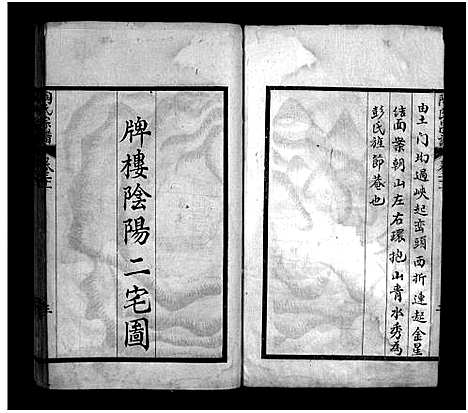 由土门坳過峡起峦頭西折連起金星
结面案朝山左右環抱山青水秀為
彭氏旌節菴也
牌樓陰陽二宅圖